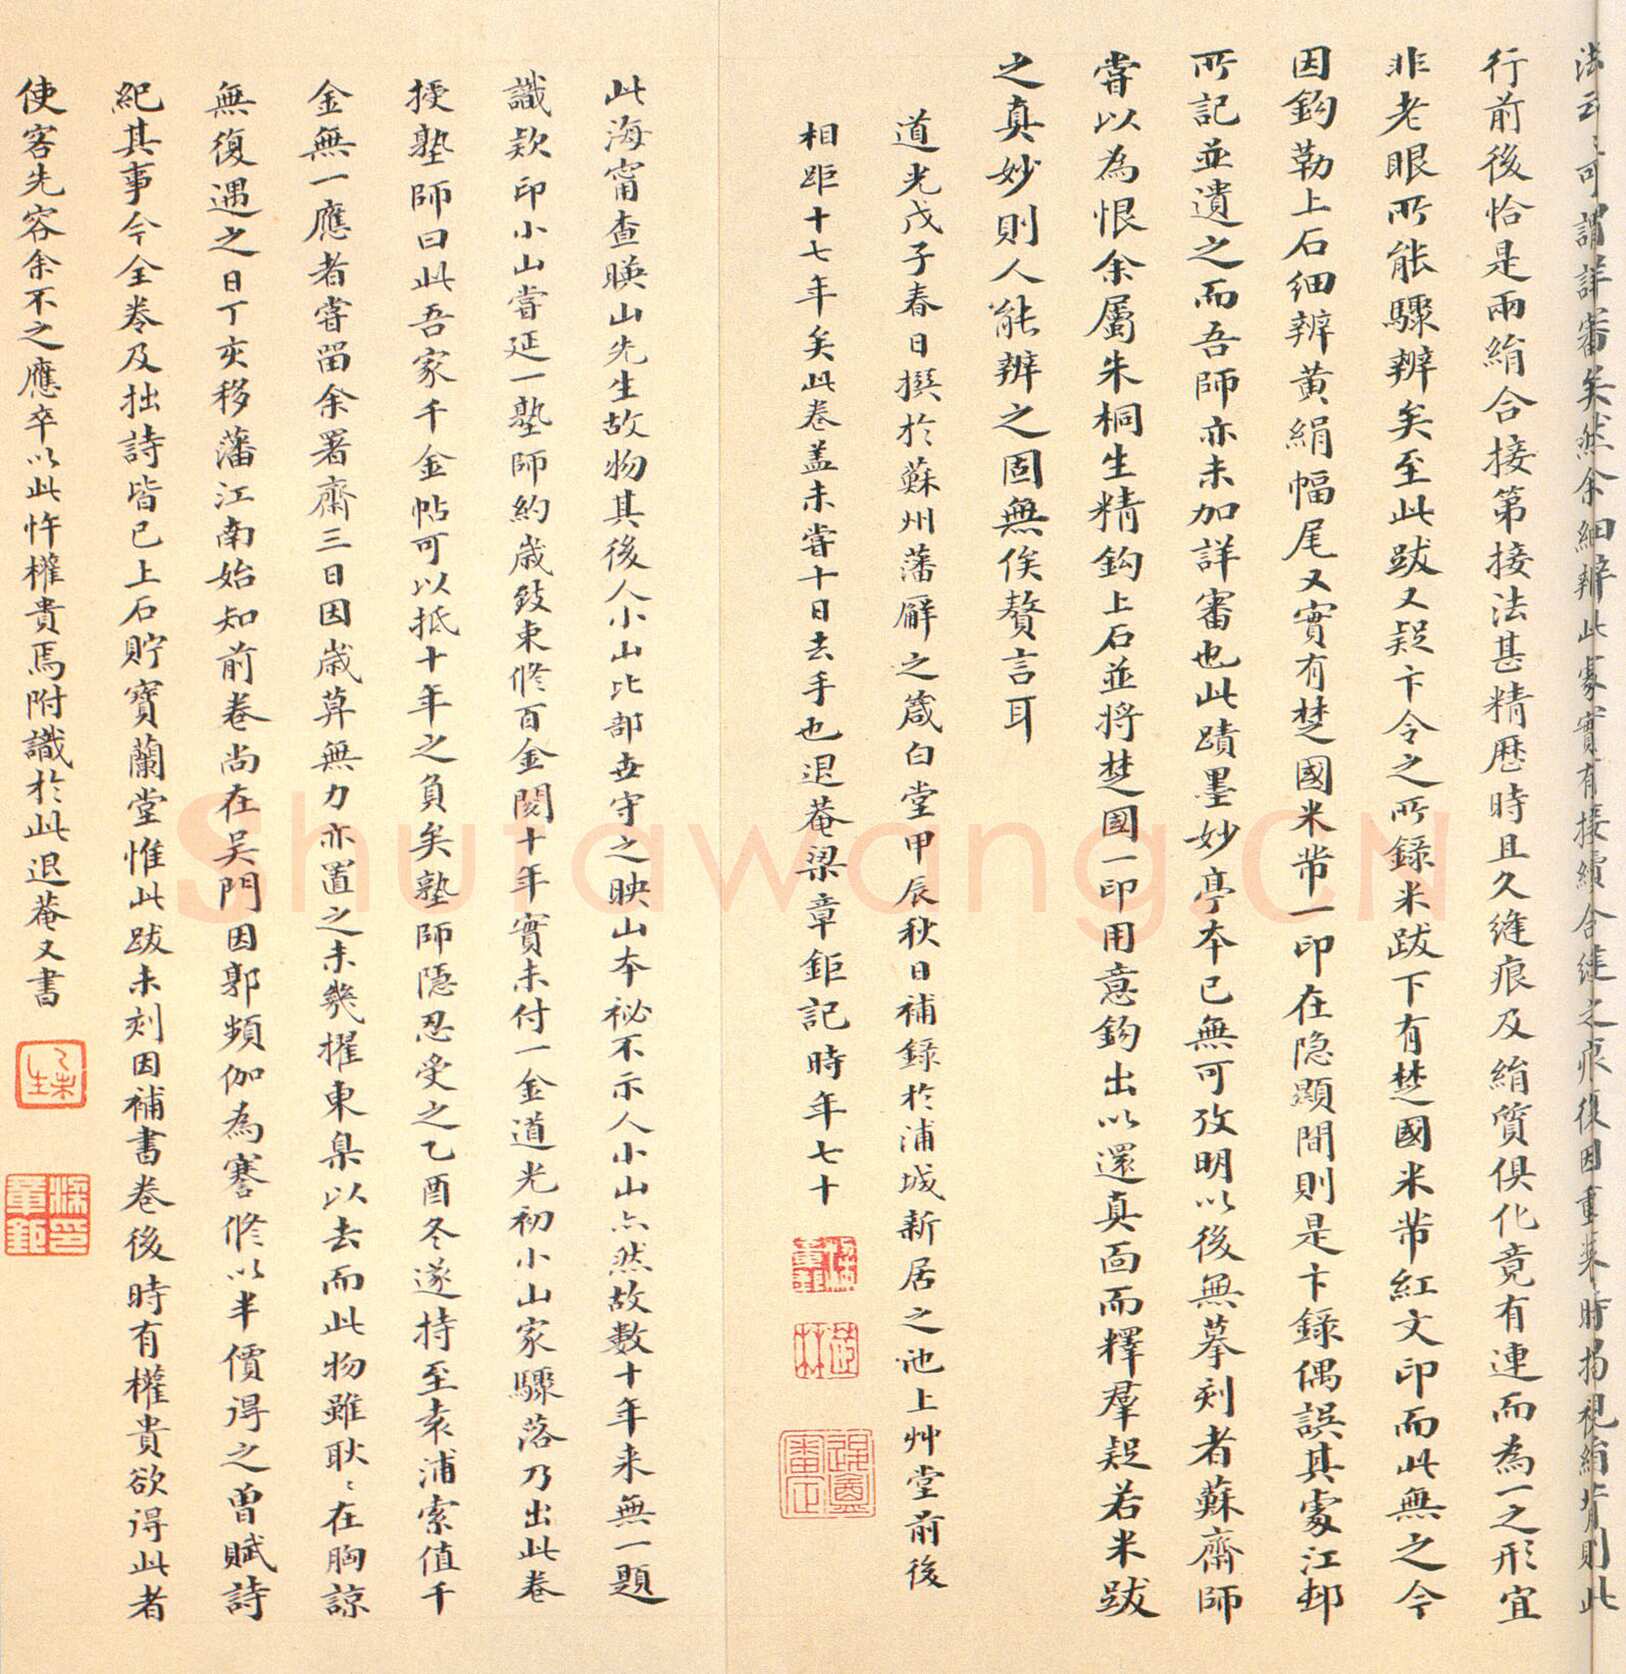 法云云可謂詳審矣然余細辨此處實有接續合縫之痕復因重裝時揭視絹背則此
行前後恰是兩絹合接第接法甚精歷時且久縫痕及絹質俱化竟有連而為一之形宜
非老眼所能驟辨矣至此跋又疑卞令之所錄米跋下有楚國米芾紅文印而此無之今
因鈎勒上石細辨黃絹幅尾又實有楚國米芾一印在隐顯間則是卞錄偶誤其處江邨
所記並遺之而吾師亦未加詳審也此蹟墨妙亭本已無可攷明以後無摹刻者蘇齋師
嘗以為恨余屬朱桐生精鈎上石並將楚國一印用意鈎出以還真面而釋羣疑若米跋
之真妙則人能辨之固無俟贅言耳
道光戊子春日撰於蘇州藩廨之箴白堂甲辰秋日補錄於浦城新居之池上艸堂前後
相距十七年矣此卷盖未嘗十日去手也退菴梁章鉅記時年七十
此海甯查暎山先生故物其後人小山比部世守之映山本祕不示人小山亦然故數十年来無一題
識欵印小山嘗延一塾師約歲致束脩百金閱十年實未付一金道光初小山家驟落乃出此卷
授塾師曰此吾家千金帖可以抵十年之負矣塾師隱忍受之乙酉冬遂持至袁浦索值千
金無一應者嘗留余署齋三日因歲莫無力亦置之未幾擢東臬以去而此物雖耿〻在胸諒
無復遇之日丁亥移藩江南始知前卷尚在吴門因郭頻伽為蹇修以半價得之曾賦詩
紀其事今全卷及拙詩皆已上石貯寶蘭堂惟此跋未刻因補書卷後時有權貴欲得此者
使客先容余不之應卒以此忤權貴焉附識於此退菴又書
Shufawang.CN